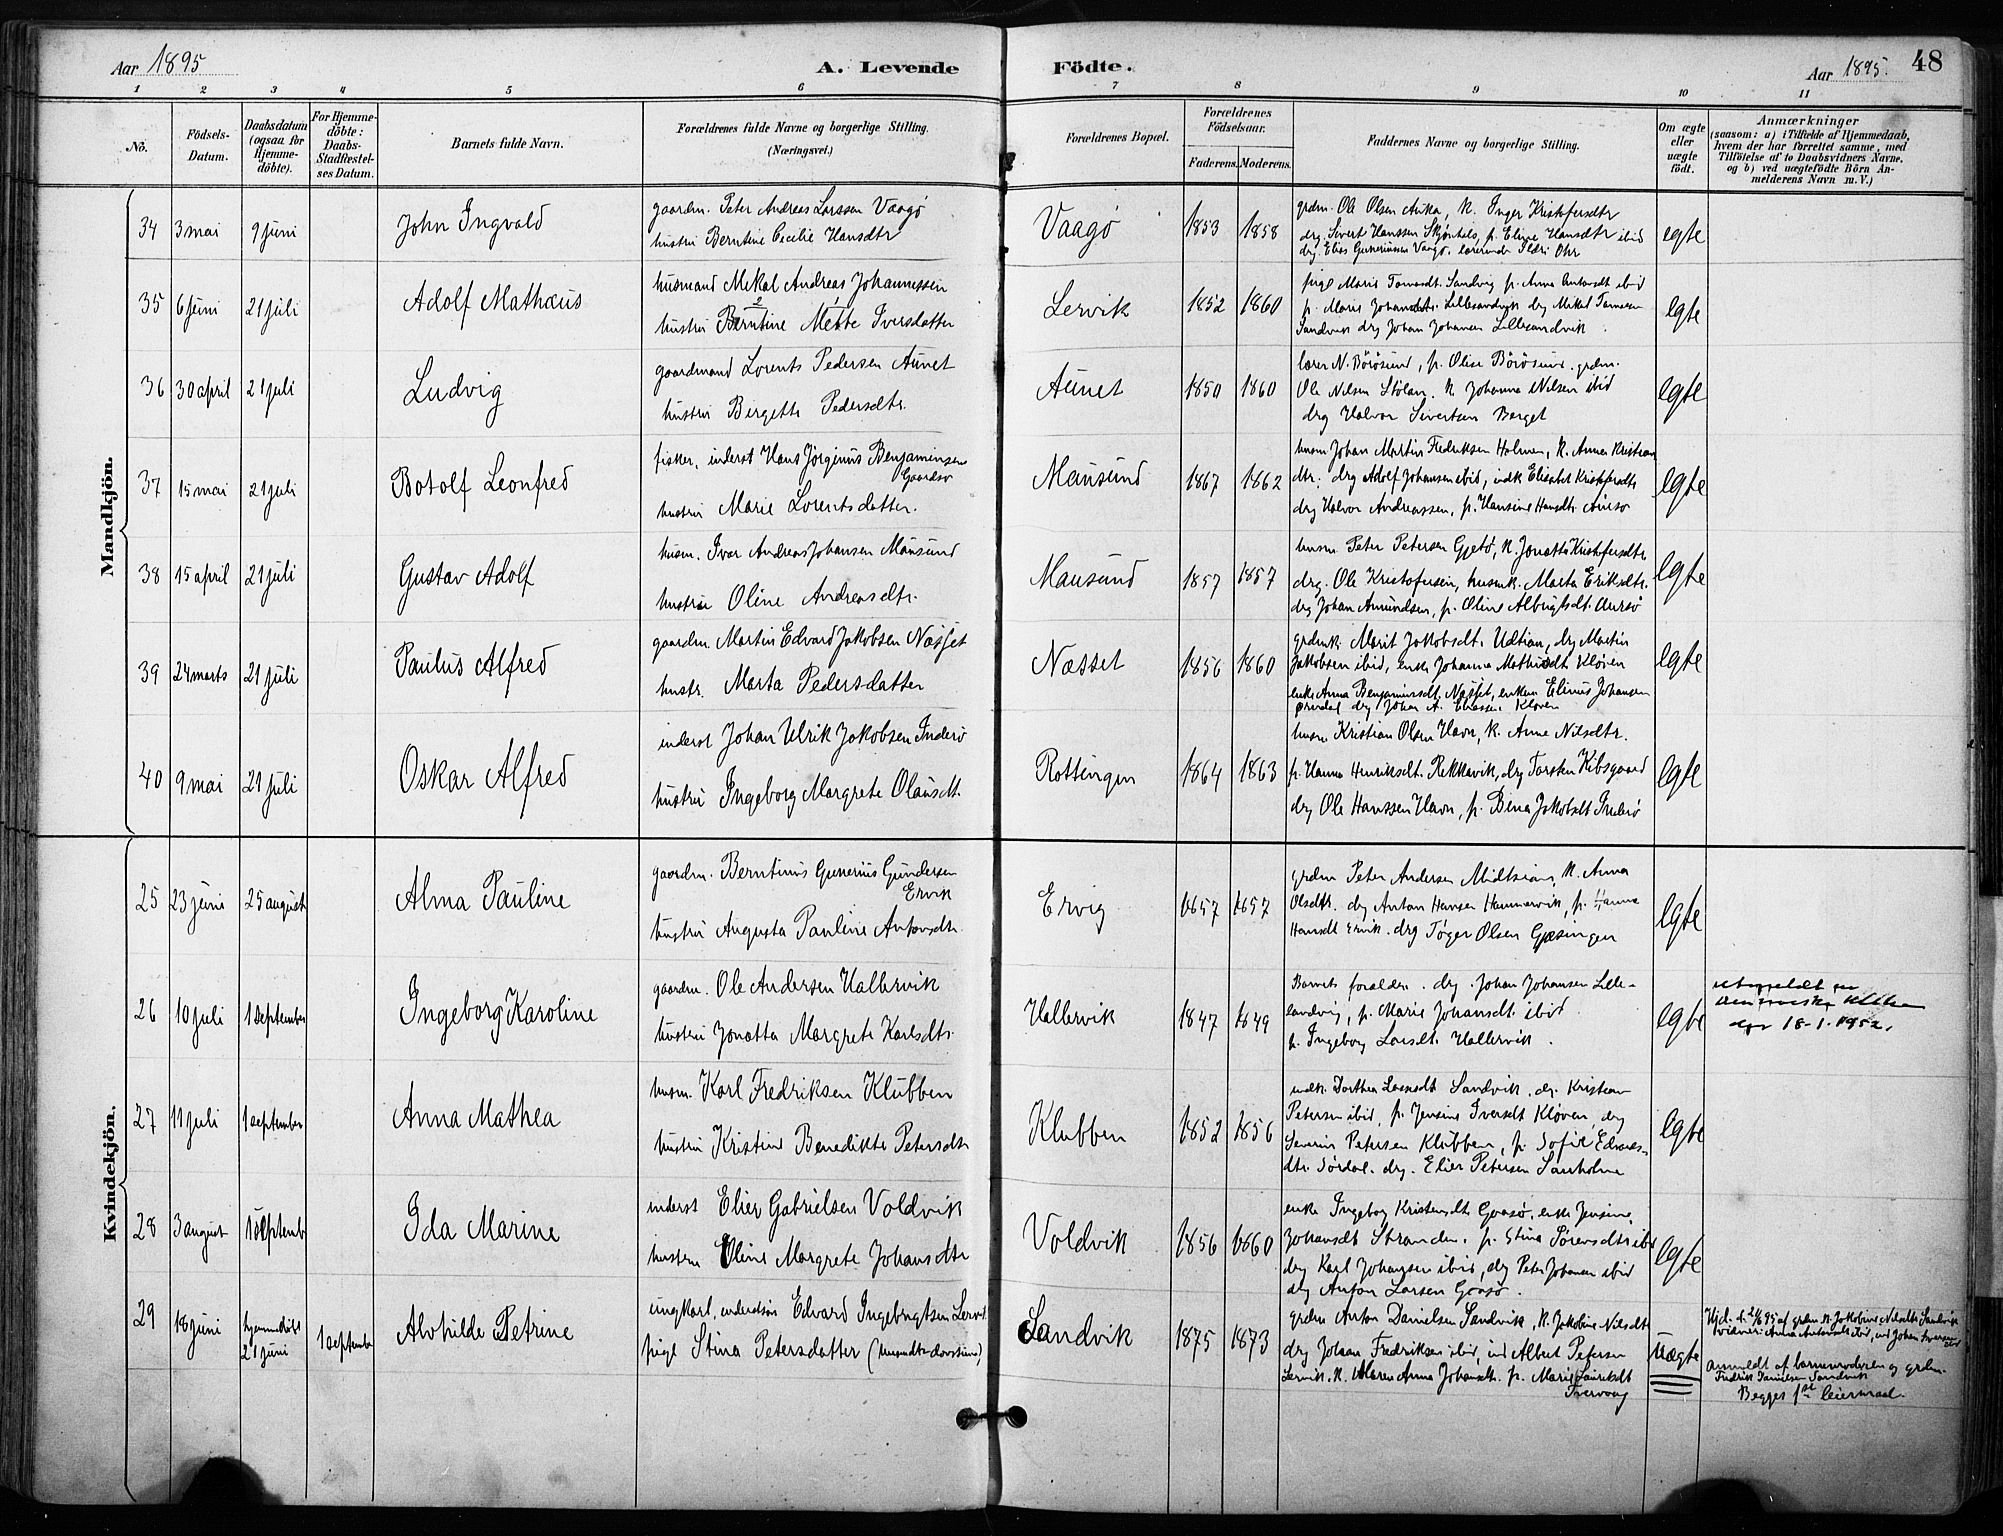 Aar 1895
A. Levende Födte.
Aar 1895. 48
1 2 3 4 5 6 7 8 9 10 11
No.
Födsels-Datum.
Daabsdatum (ogsaa for Hjemme-döbte).
For Hjemme-döbte: Daabs-Stadfæstel-ses Datum.
Barnets fulde Navn.
Forældrenes fulde Navne og borgerlige Stilling. (Næringsvei.)
Forældrenes Bopæl.
Forældrenes Födselsaar.
Faderens. Moderens.
Faddernes Navne og borgerlige Stilling.
Om ægte eller uægte födt.
Anmærkninger
(saasom: a) i Tilfælde af Hjemmedaab, hvem der har forrettet samme, med Tilföielse af to Daabsvidners Navne, og b) ved uægtefödte Börn An-melderens Navn m.V.)
Mandkjön.
34 3 mai 9 juni John Ingvald
gaardm. Peter Andreas Larssen Vaagø
hustru Berntine Cecilie Hansdtr
Vaagø 1853 1858
grdm. Ole Olsen Auka, K. Inger Kristofersdtr
drg. Sivert Hanssen Skjønhals, p. Eline Hansdtr ibid
drg. Elias Gunerius Vaagø
egte
35 6 juni 21 juli Adolf Mathæus
husmand Mekal Andreas Johannessen
hustru Berntine Mette Iversdatter
Lervik 1852 1860
pige Marie Sandvig p. Anna ibid
p. Marie Johansdtr. Lillesandvik drg Mekal
Sandvik drg Johan Johansen Lillesandvik
egte
36 30 april 21 juli Ludvig
gaardmand Lorents Pedersen Aunet
hustru Birgette Pedersdtr.
Aunet 1850 1860
lærer N. Börösund, p. Olise Börösund. grdm.
Ole Nilsen Stölan. K. Johanna Nilsen ibid
drg Halvor Sivertsen Berget
egte
37 15 mai 21 juli Botolf Leonfred
fisker, inderst Hans Jörginus Benjaminsen
hustru Marie Lorentsdatter.
Mausund 1867 1862
husm Johan Martin Fredriksen Holmen, K. Anna Kristian
dtr. drg Adolf Johansen ibid, Elisabet Kristofersdtr
drg Halvor Andreassen, p. Hansine Hansdtr
egte
38 15 april 21 juli Gustav Adolf
husm. Ivar Andreas Johansen Mausund
hustru Oline Andreasdtr.
Mausund 1857 1857
husm Peter Petersen Gjetø, K. Jonatta Kristofersdtr
drg. Ole Kristofersen, Marta Eriksdtr.
drg Johan Amundsen, p. Oline
egte
39 24 marts 21 juli Paulus Alfred
gaardm. Martin Edvard Jakobsen Næsset
hustr. Marta Pedersdatter
Næsset 1856 1860
Marit Jakobsdt. Udtian, drg Martin
Jakobsen ibid, enke Johanna Kløven
enke Anna Benjaminsdt. Næsset, Elinus Johansen
drg Johan A. Eliassen Kløven
egte
40 9 mai 21 juli Oskar Alfred
inderst Johan Ulrik Jakobsen Inderø
hustru Ingeborg Margrete Olausdt.
Rottingen 1864 1863
husm Kristian Olsen Havn, K. Anne Nilsdtr.
p. Hanna Henriksdt. drg Torsten Kibsgaard
drg Ole Hanssen Havn, p. Bina Jakobsdt Inderø
egte
Kvindekjön.
25 23 juni 25 august Alma Pauline
gaardm. Berntinus Gunerius Gundersen
Ervik
hustru Augusta Pauline Antonsdtr.
Ervig 1857 1857
grdm Peter Andersen Midtsian, K. Anna
Olsdtr. drg Anton Hansen Hammervik, p. Hanna
Hansdt Ervik. drg Tøger Olsen Gjæsingen
egte
26 10 juli 1 september Ingeborg Karoline
gaardm. Ole Andersen Hallervik
hustru Jonatta Margrete Karlsdtr.
Hallervik 1847 1849
Barnets foreldre. drg. Johan Johansen Lille-
sandvig, p. Marie Johansdt. ibid
p. Ingeborg Larsdt. Hallervik.
egte
18-1.1952.
27 11 juli 1 september Anna Mathea
husm. Karl Fredriksen Klubben
hustru Kristine Benedikte Petersdtr
Klubben 1852 1856
Dorthea Larsdt Sandvik, drg. Kristian
Petersen ibid, p. Jensine Iversdt Kløven, drg
Severin Petersen Klubben, p. Sofie Edvards-
dtr. Sördal. drg. Elier Petersen
egte
28 3 august 1 Septemb Ida Marine
inderst Elier Gabrielsen Voldvik
hustru Oline Margrete Johansdtr
Voldvik 1856 1860
enke Ingeborg enke Jensine
Johansdt Stranden. p. Stina Sörensdtr ibid
drg Karl Johansen ibid, drg Peter Johansen ibid
drg Anton Larsen
egte
29 18 juni hjemmedöbt 21 juni 1 septembr Alvhilde Petrine
ungkarl, Edvard Ingebrigtsen Lervik
pige Stina Petersdatter
Sandvik 1875 1873
grdm Anton Danielsen Sandvik, K. Jakobine Nilsdt
drg Johan Fredriksen ibid, ind Albert Petersen
Lervik. K. Maren Anna Johansdt. p. Marie
Uægte
Hjd. d. 21/6 95 af grdm K. Jakobine Nilsdtr Sandvik
anmeldt af barnemoderen og grdm.
Fredrik Danielsen Sandvik
Begges 1st leiermaal.